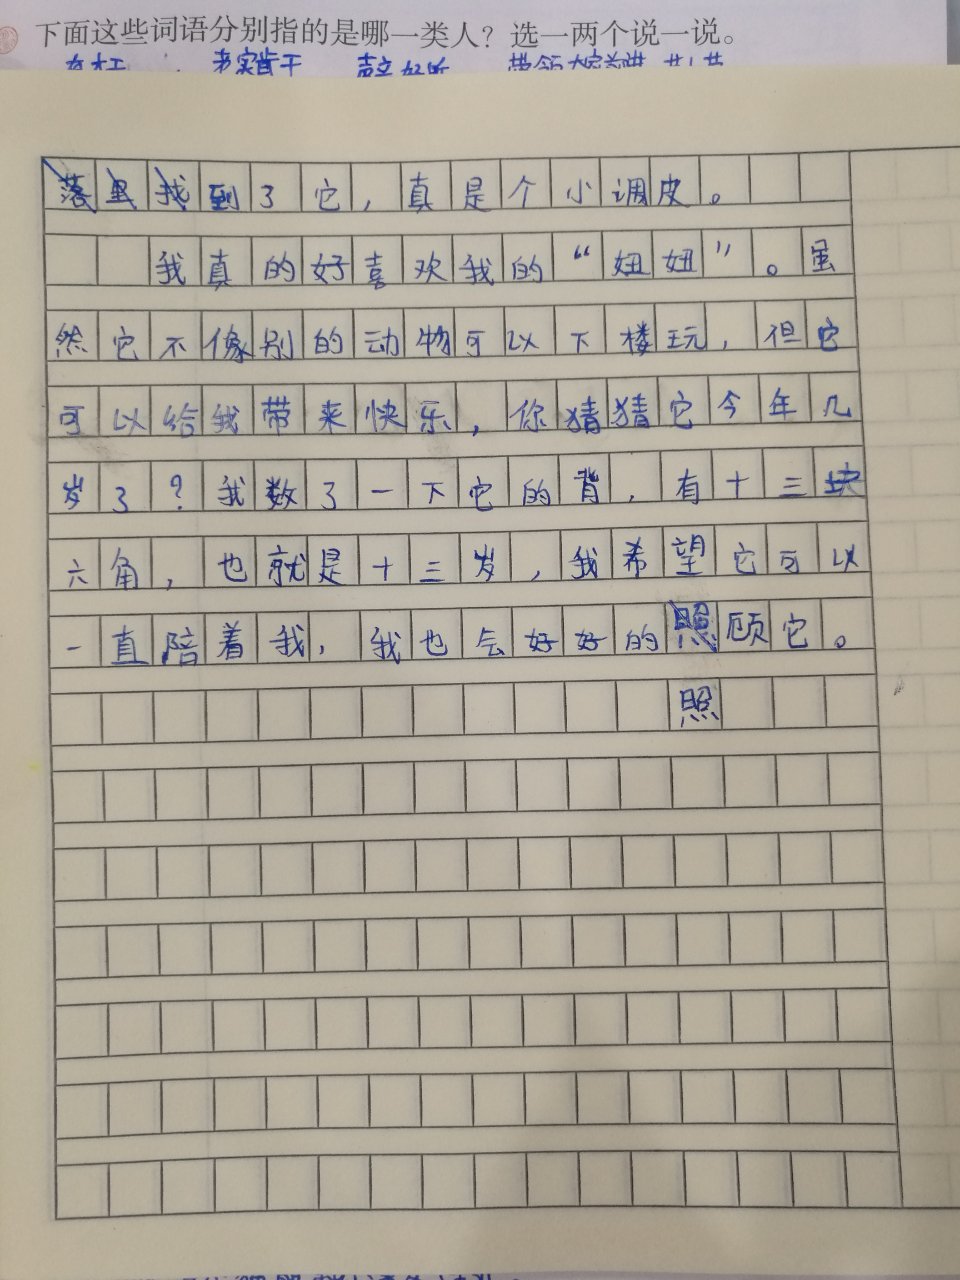 下面这些词语分别指的是哪一类人？选一两个说一说。
落里找到了它，真是个小调皮。
我真的好喜欢我的“妞妞”。虽
然它不像别的动物可以下楼玩，但它
可以给我带来快乐，你猜猜它今年几
岁了？我数了一下它的背，有十三块
六角，也就是十三岁，我希望它可以
一直陪着我，我也会好好的照顾它。
照